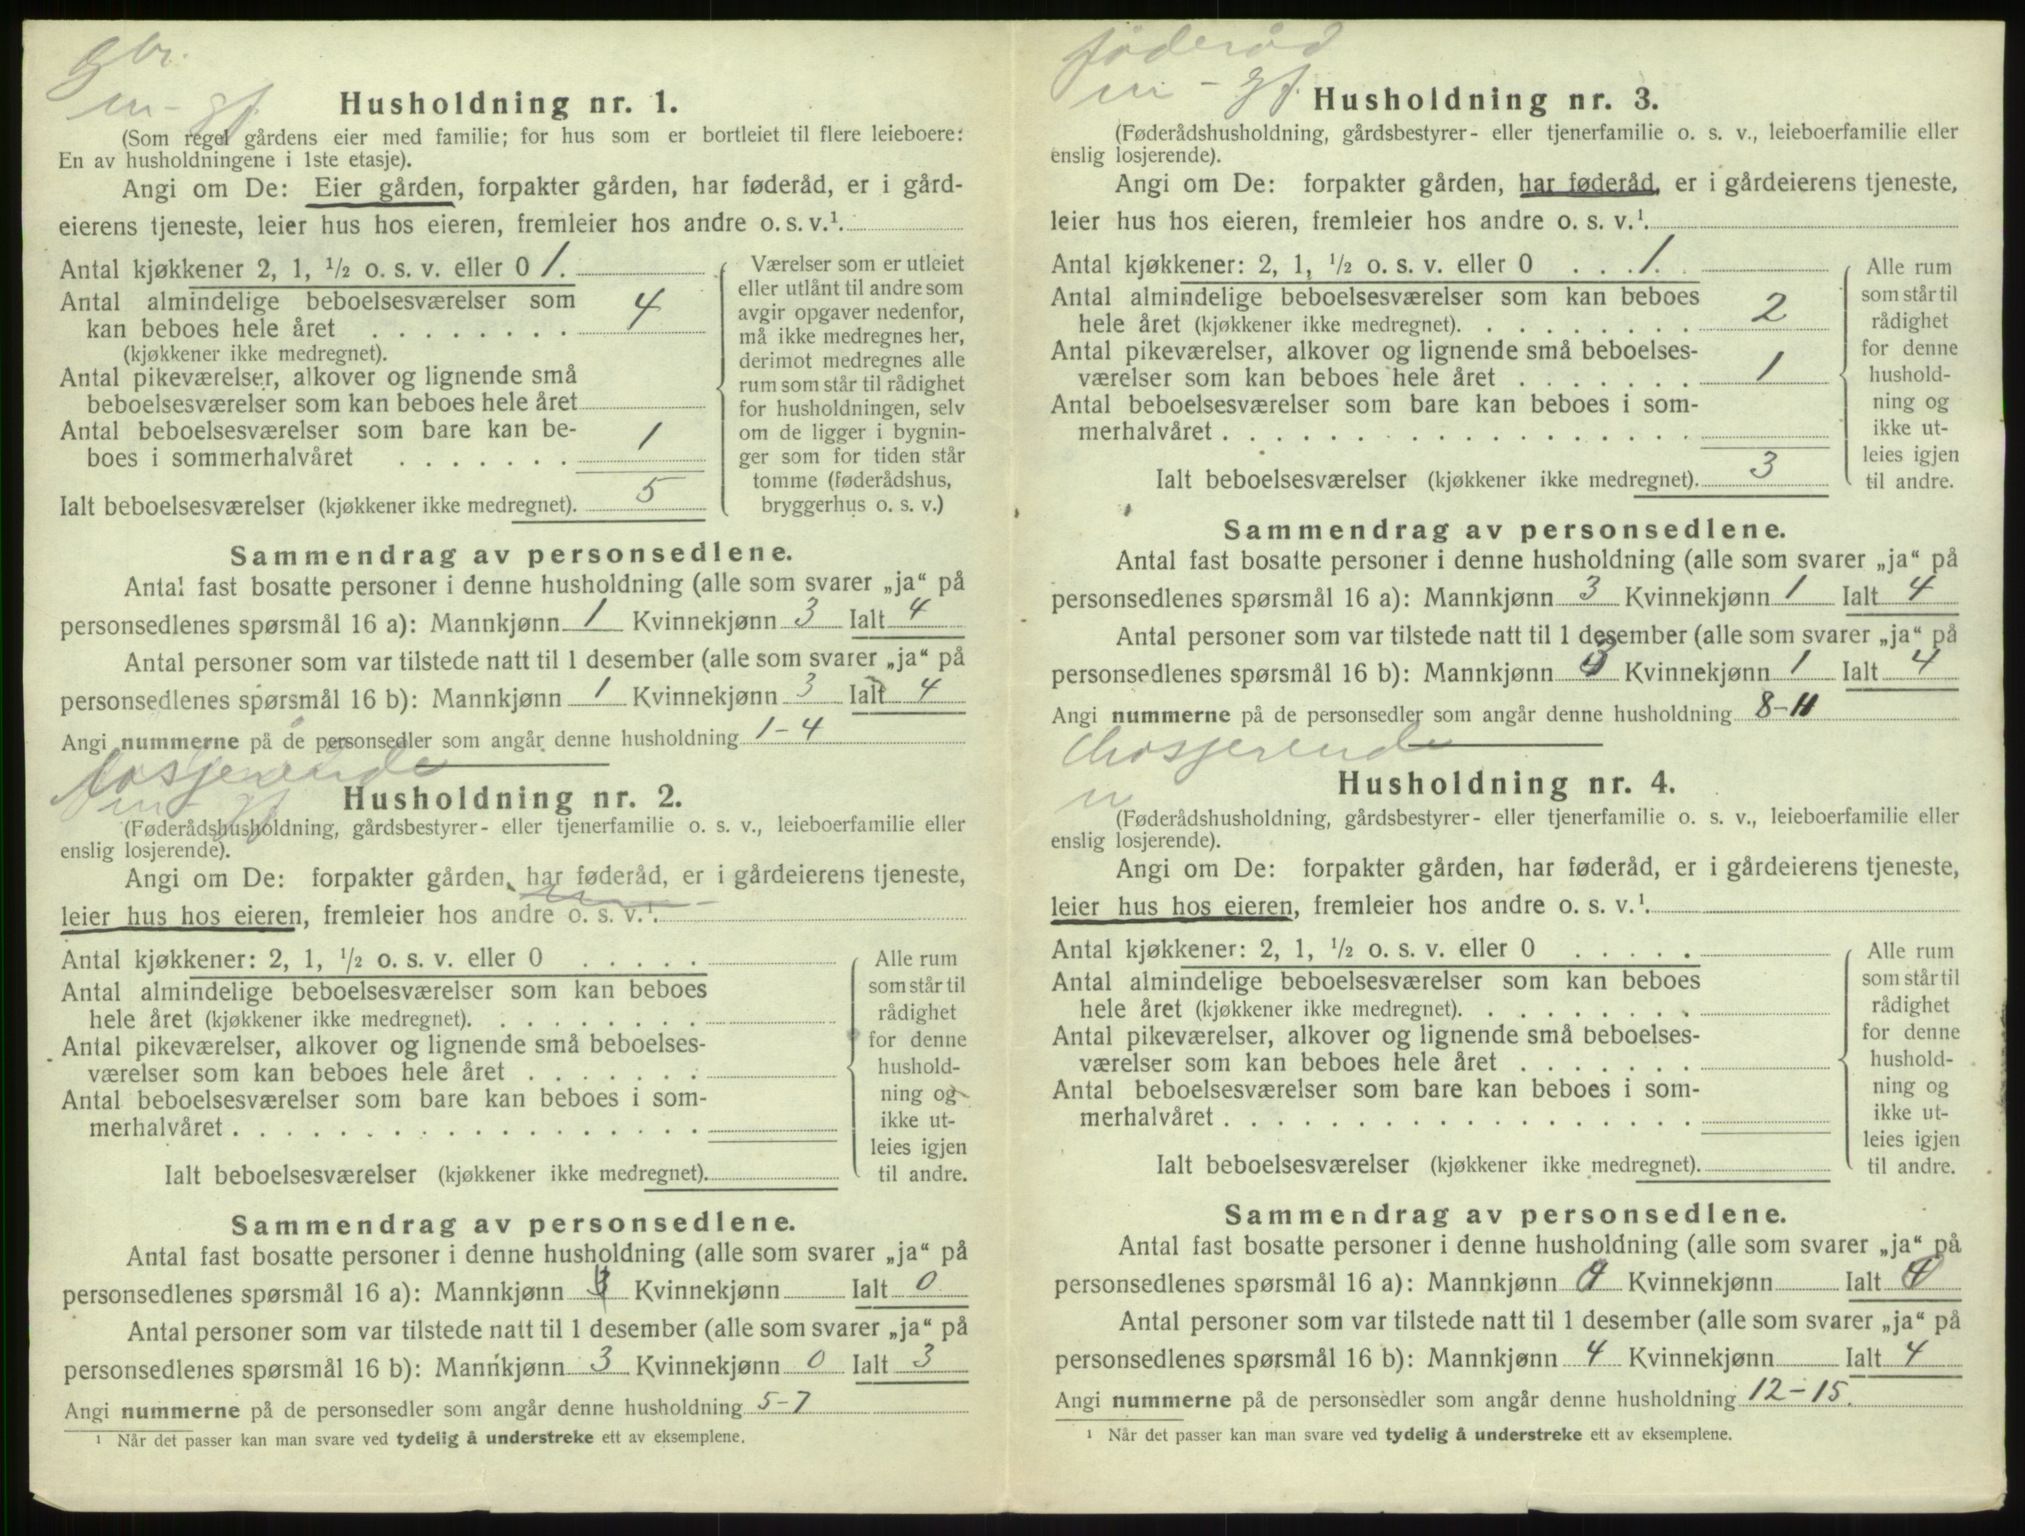 Gbr.
m - gf
Husholdning nr. 1.
(Som regel gårdens eier med familie; for hus som er bortleiet til flere leieboere:
En av husholdningene i 1ste etasje).
Angi om De: Eier gården, forpakter gården, har føderåd, er i gård-
eierens tjeneste, leier hus hos eieren, fremleier hos andre o. s. v.¹.
Antal kjøkkener 2, 1, ½ o. s. v. eller 0 1.
Antal almindelige beboelsesværelser som
kan beboes hele året . . . . . . . . 4
(kjøkkener ikke medregnet).
Antal pikeværelser, alkover og lignende små
beboelsesværelser som kan beboes hele året
Antal beboelsesværelser som bare kan be-
boes i sommerhalvåret . . . . . . . 1
Ialt beboelsesværelser (kjøkkener ikke medregnet). 5
Værelser som er utleiet
eller utlånt til andre som
avgir opgaver nedenfor,
må ikke medregnes her,
derimot medregnes alle
rum som står til rådighet
for husholdningen, selv
om de ligger i bygnin-
ger som for tiden står
tomme (føderådshus,
bryggerhus o. s. v.)
Sammendrag av personsedlene.
Antal fast bosatte personer i denne husholdning (alle som svarer „ja“ på
personsedlenes spørsmål 16 a): Mannkjønn 1 Kvinnekjønn 3 Ialt 4
Antal personer som var tilstede natt til 1 desember (alle som svarer „ja“ på
personsedlenes spørsmål 16 b): Mannkjønn 1 Kvinnekjønn 3 Ialt 4
Angi nummerne på de personsedler som angår denne husholdning 1-4
losjerende
m - gf
Husholdning nr. 2.
(Føderådshusholdning, gårdsbestyrer- eller tjenerfamilie o. s. v., leieboerfamilie eller
enslig losjerende).
Angi om De: forpakter gården, har føderåd, er i gårdeierens tjeneste,
leier hus hos eieren, fremleier hos andre o. s. v.¹.
Antal kjøkkener: 2, 1, ½ o. s. v. eller 0 . . . . .
Antal almindelige beboelsesværelser som kan beboes
hele året (kjøkkener ikke medregnet). . . . . . . . .
Antal pikeværelser, alkover og lignende små beboelses-
værelser som kan beboes hele året . . . . . . .
Antal beboelsesværelser som bare kan beboes i som-
merhalvåret . . . . . . . . . . . . . . . . . .
Ialt beboelsesværelser (kjøkkener ikke medregnet).
Alle rum
som står til
rådighet
for denne
hushold-
ning og
ikke ut-
leies igjen
til andre.
Sammendrag av personsedlene.
Antal fast bosatte personer i denne husholdning (alle som svarer „ja“ på
personsedlenes spørsmål 16 a): Mannkjønn Kvinnekjønn Ialt 0
Antal personer som var tilstede natt til 1 desember (alle som svarer „ja“ på
personsedlenes spørsmål 16 b): Mannkjønn 3 Kvinnekjønn 0 Ialt 3
Angi nummerne på de personsedler som angår denne husholdning 5-7
¹ Når det passer kan man svare ved tydelig å understreke ett av eksemplene.
føderåd
m - gf.
Husholdning nr. 3.
(Føderådshusholdning, gårdsbestyrer- eller tjenerfamilie o. s. v., leieboerfamilie eller
enslig losjerende).
Angi om De: forpakter gården, har føderåd, er i gårdeierens tjeneste,
leier hus hos eieren, fremleier hos andre o. s. v.¹.
Antal kjøkkener: 2, 1, ½ o. s. v. eller 0 . . . 1.
Antal almindelige beboelsesværelser som kan beboes
hele året (kjøkkener ikke medregnet). . . . . . . . . 2
Antal pikeværelser, alkover og lignende små beboelses-
værelser som kan beboes hele året . . . . . . . 1
Antal beboelsesværelser som bare kan beboes i som-
merhalvåret . . . . . . . . . . . . . . . . . .
Ialt beboelsesværelser (kjøkkener ikke medregnet). 3
Alle rum
som står til
rådighet
for denne
hushold-
ning og
ikke ut-
leies igjen
til andre.
Sammendrag av personsedlene.
Antal fast bosatte personer i denne husholdning (alle som svarer „ja“ på
personsedlenes spørsmål 16 a): Mannkjønn 3 Kvinnekjønn 1 Ialt 4
Antal personer som var tilstede natt til 1 desember (alle som svarer „ja“ på
personsedlenes spørsmål 16 b): Mannkjønn 3 Kvinnekjønn 1 Ialt 4
Angi nummerne på de personsedler som angår denne husholdning 8-11
losjerende
Husholdning nr. 4.
(Føderådshusholdning, gårdsbestyrer- eller tjenerfamilie o. s. v., leieboerfamilie eller
enslig losjerende).
Angi om De: forpakter gården, har føderåd, er i gårdeierens tjeneste,
leier hus hos eieren, fremleier hos andre o. s. v.¹.
Antal kjøkkener: 2, 1, ½ o. s. v. eller 0 . . . . .
Antal almindelige beboelsesværelser som kan beboes
hele året (kjøkkener ikke medregnet). . . . . . . . .
Antal pikeværelser, alkover og lignende små beboelses-
værelser som kan beboes hele året . . . . . . .
Antal beboelsesværelser som bare kan beboes i som-
merhalvåret . . . . . . . . . . . . . . . . . .
Ialt beboelsesværelser (kjøkkener ikke medregnet).
Alle rum
som står til
rådighet
for denne
hushold-
ning og
ikke ut-
leies igjen
til andre.
Sammendrag av personsedlene.
Antal fast bosatte personer i denne husholdning (alle som svarer „ja“ på
personsedlenes spørsmål 16 a): Mannkjønn Kvinnekjønn Ialt
Antal personer som var tilstede natt til 1 desember (alle som svarer „ja“ på
personsedlenes spørsmål 16 b): Mannkjønn 4 Kvinnekjønn Ialt 4
Angi nummerne på de personsedler som angår denne husholdning 12-15.
¹ Når det passer kan man svare ved tydelig å understreke ett av eksemplene.